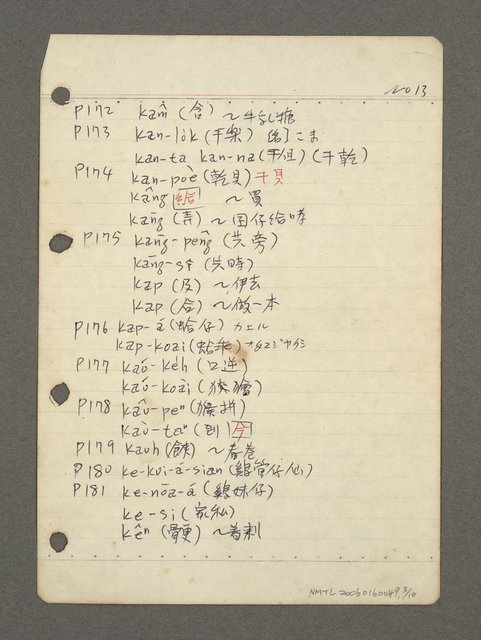 No 13
P172 kâm (含) ~牛乳糖
P173 kan-lo̍k (干樂) こま
kan-ta kan-na (干但) (干乾)
P174 kan-pòe (乾貝) 干貝
kāng 給 ~買
kāng (弄) ~囝仔給哮
P175 kāng-pêng (共旁)
kāng-sî (共時)
kap (及) ~伊去
kap (合) ~做一本
P176 kap-á (蛤仔) カエル
kap-koai (蛤乖)
P177 kaú-ke̍h (口逆)
kaú-koài (猴獪)
P178 kâu-peⁿ (猴拼)
kàu-taⁿ (到今)
P179 kauh (餃) ~春卷
P180 ke-kui-á-sian (雞管仔仙)
P181 ke-nōa-á (雞妹仔)
ke-si (家私)
kêⁿ (骾) ~着刺
NMTL 20060160049, 5/10